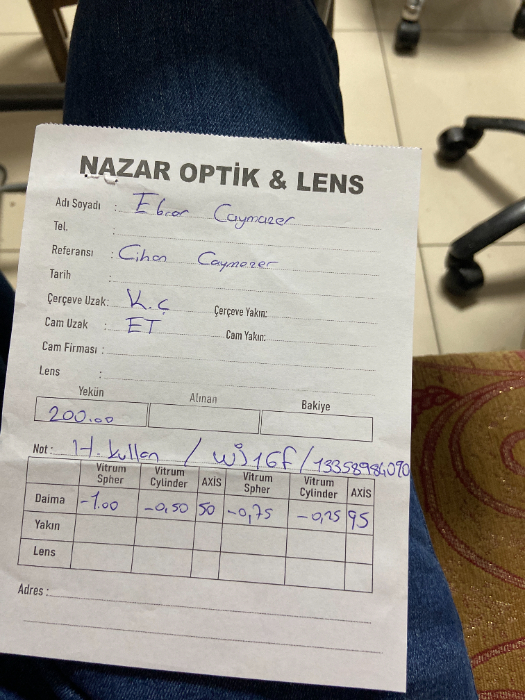 NAZAR OPTİK & LENS
Adı Soyadı : Ebrar Caymazer
Tel. :
Referansı : Cihan Caymazer
Tarih :
Çerçeve Uzak: K.Ç Çerçeve Yakın:
Cam Uzak : ET Cam Yakın:
Cam Firması :
Lens :
Yekün Alınan Bakiye
200.00
Not : H. kullan / 13358984090
Vitrum Spher Vitrum Cylinder AXİS Vitrum Spher Vitrum Cylinder AXİS
Daima -1.00 -0,50 50 -0,75 -0,25 95
Yakın
Lens
Adres :